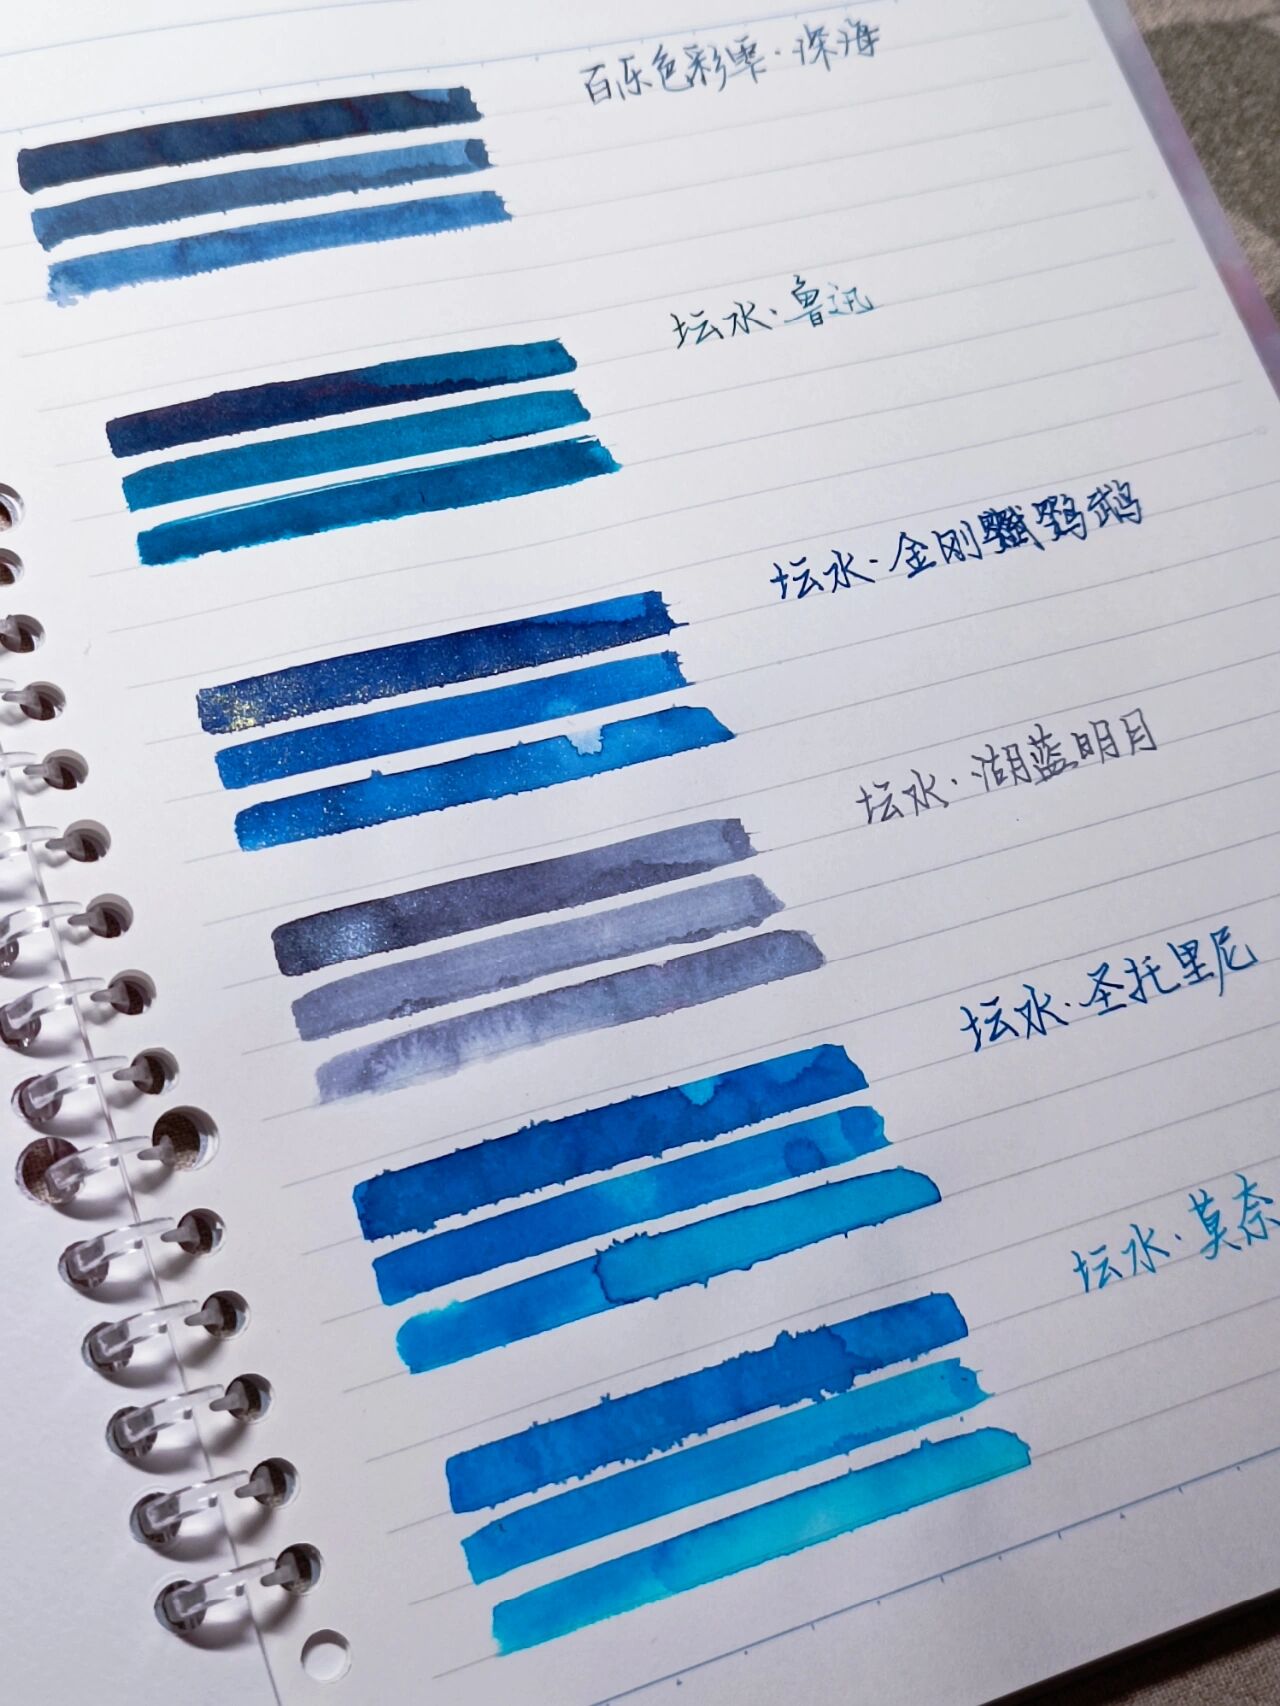 百乐色彩雫·深海
坛水·鲁迅
坛水·金刚鹦鹉
坛水·湖蓝明月
坛水·圣托里尼
坛水·莫奈